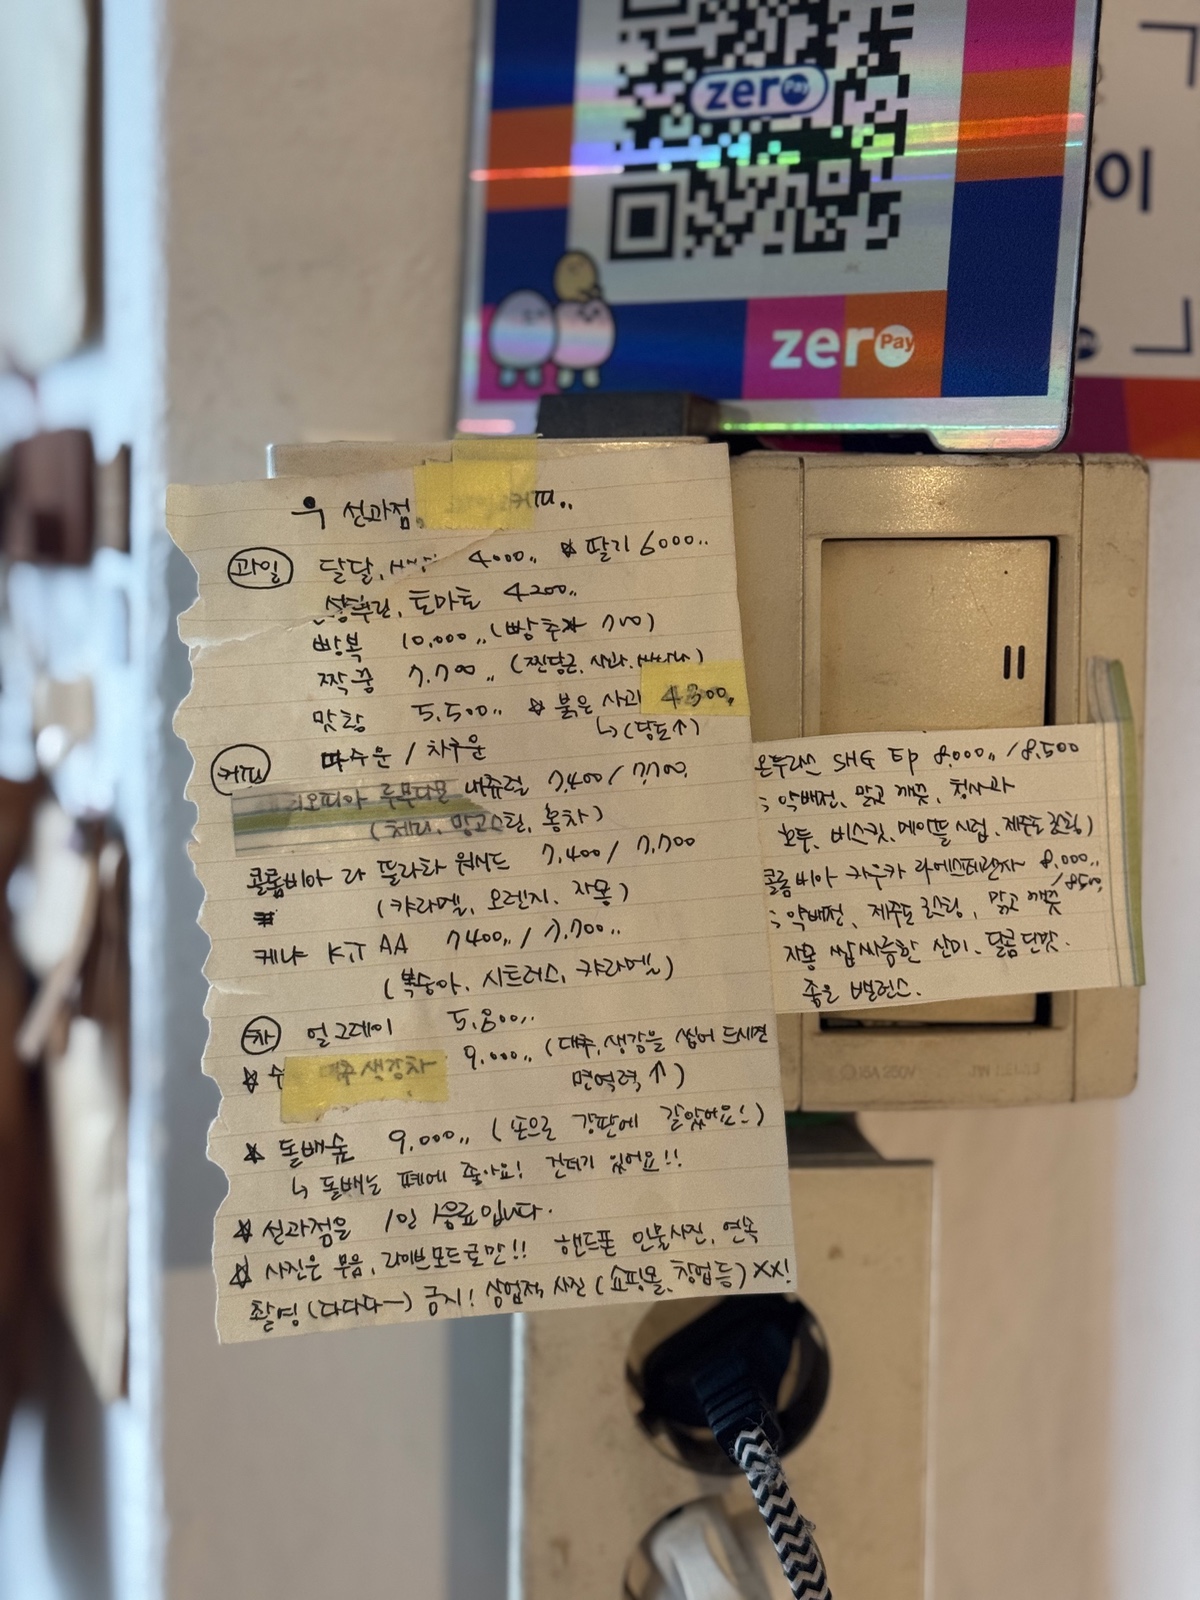 zero Pay
zero Pay
이
우 선과점, 커피..
과일 달달, 4000.. ☆ 딸기 6000..
토마토 4200..
빵복 10,000..(빵추가 700)
짝꿍 7,700.. (찐당근, 사과, 바나나)
맛탕 5,500.. ☆ 붉은 사과 4300..
↳(당도↑)
커피 따수운 / 차가운
리오피아 내츄럴 7,400 / 7,700
(체리, 망고스틴, 홍차)
콜롬비아 라 뜰라타 워시드 7,400 / 7,700
(캬라멜, 오렌지, 자몽)
케냐 K.T AA 7400.. / 7,700..
(복숭아, 시트러스, 캬라멜)
차 얼그레이 5,800..
☆ 생강차 9,000.. (대추, 생강을 씹어 드시면
면역력 ↑)
☆ 돌배숲 9,000.. (손으로 강판에 갈았어요!)
↳ 돌배는 폐에 좋아요! 건더기 있어요!!
☆ 선과점은 1인 1음료입니다.
☆ 사진은 무음, 라이브모드로만!! 핸드폰 인물사진, 연속
촬영 (다다다ー) 금지! 상업적 사진 (쇼핑몰, 창업등) XX!
온두라스 SHG EP 8.000.. / 8,500
; 약배전, 맑고 깨끗, 청사과
호두, 비스킷, 메이플시럽, 제주도 로스팅)
콜롬비아 카우카 라에스페란자 8.000..
/ 8500
; 약배전, 제주도 로스팅, 맑고 깨끗
자몽 쌉싸름한 산미, 달콤 단맛.
좋은 밸런스.
16A 250V